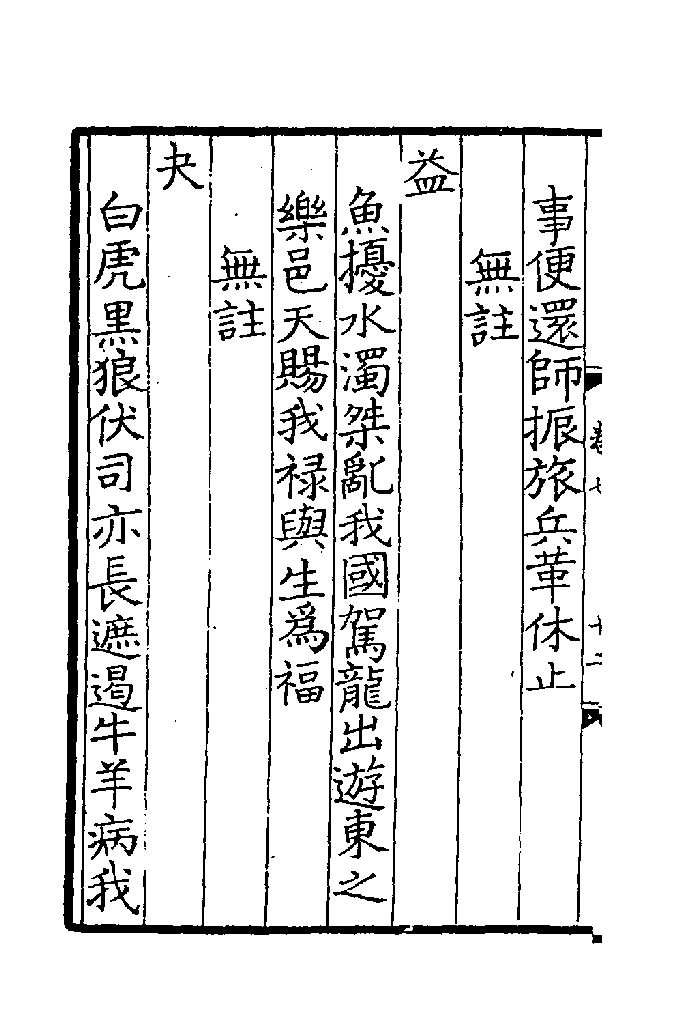 事便還師振旅兵革休止
無註
益
魚擾水濁桀亂我國駕龍出遊東之
樂邑天賜我禄與生為福
無註
夬
白虎黑狼伏司亦長遮遏牛羊病我
卷七
十二